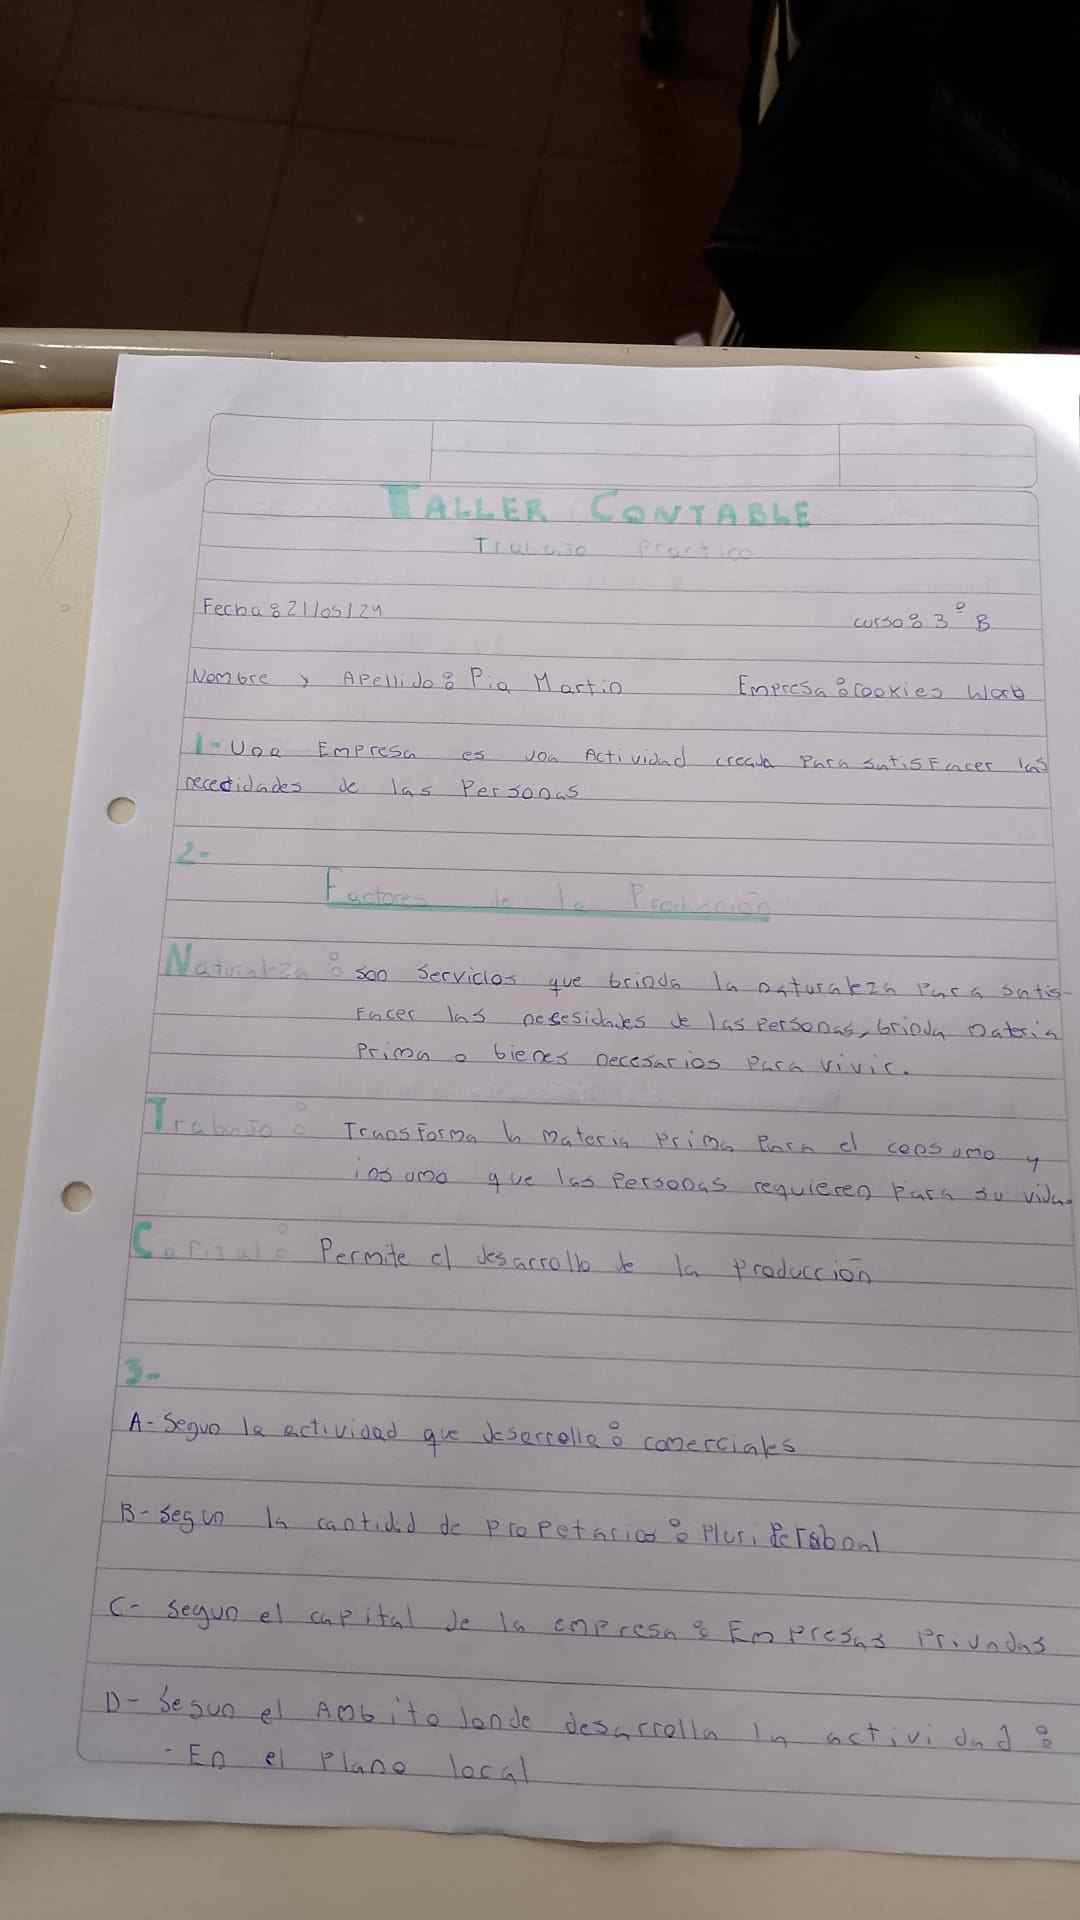 TALLER CONTABLE
Trabajo practico
Fecha: 21/05/24 curso: 3° B
Nombre y Apellido: Pia Martin Empresa: Cookies Word
1- Una Empresa es una Actividad creada para satisfacer las
necedidades de las Personas
2-
Factores de la Producción
Naturaleza: son servicios que brinda la naturaleza para satis-
facer las nesesidades de las personas, brinda materia
prima o bienes necesarios para vivir.
Trabajo: Transforma la materia prima para el consumo y
insumo que las personas requieren para su vida
Capital: Permite el desarrollo de la producción
3-
A- Segun la actividad que desarrolla: comerciales
B- Segun la cantidad de propetarios:
C- Segun el capital de la empresa: Empresas Privadas
D- Segun el Ambito donde desarrolla la actividad:
- En el plano local